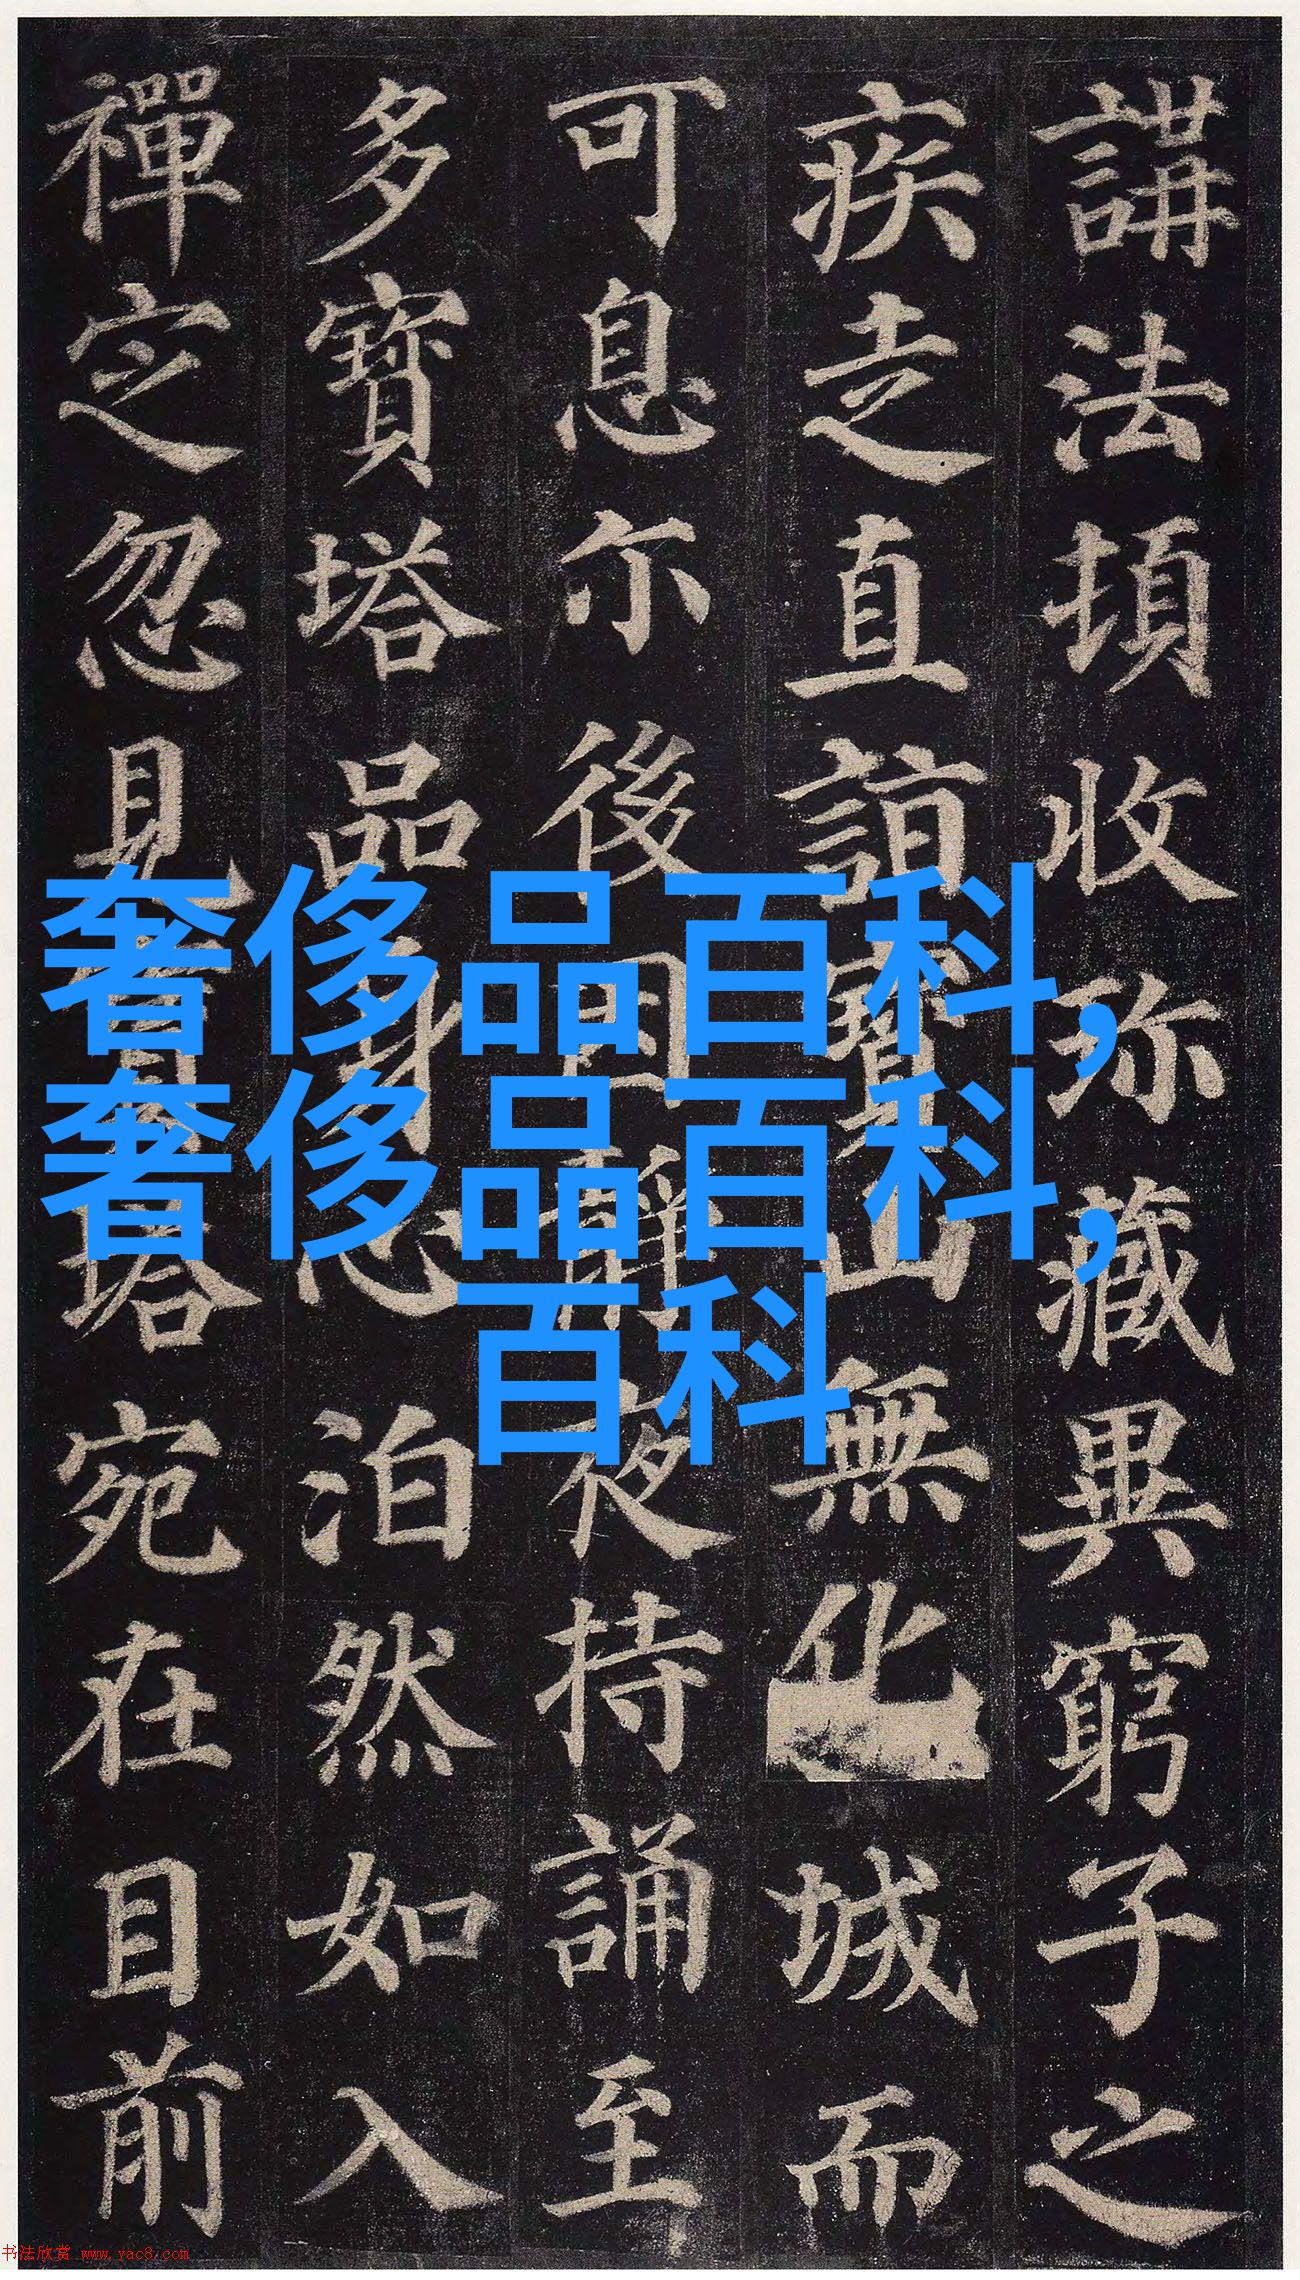 講法頓收珎藏異窮子之
疾走直詣寶山無化城而
可息尒後因靜夜持誦至
多寶塔品身心泊然如入
禪定忽見寶塔宛在目前
奢侈品百科,
奢侈品百科,
百科
书法欣赏 www.yac8.com